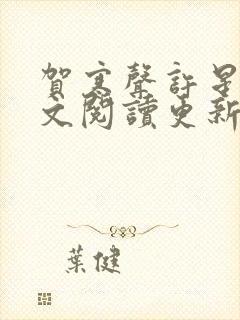 賀寒聲許星
文閱讀更新
葉健